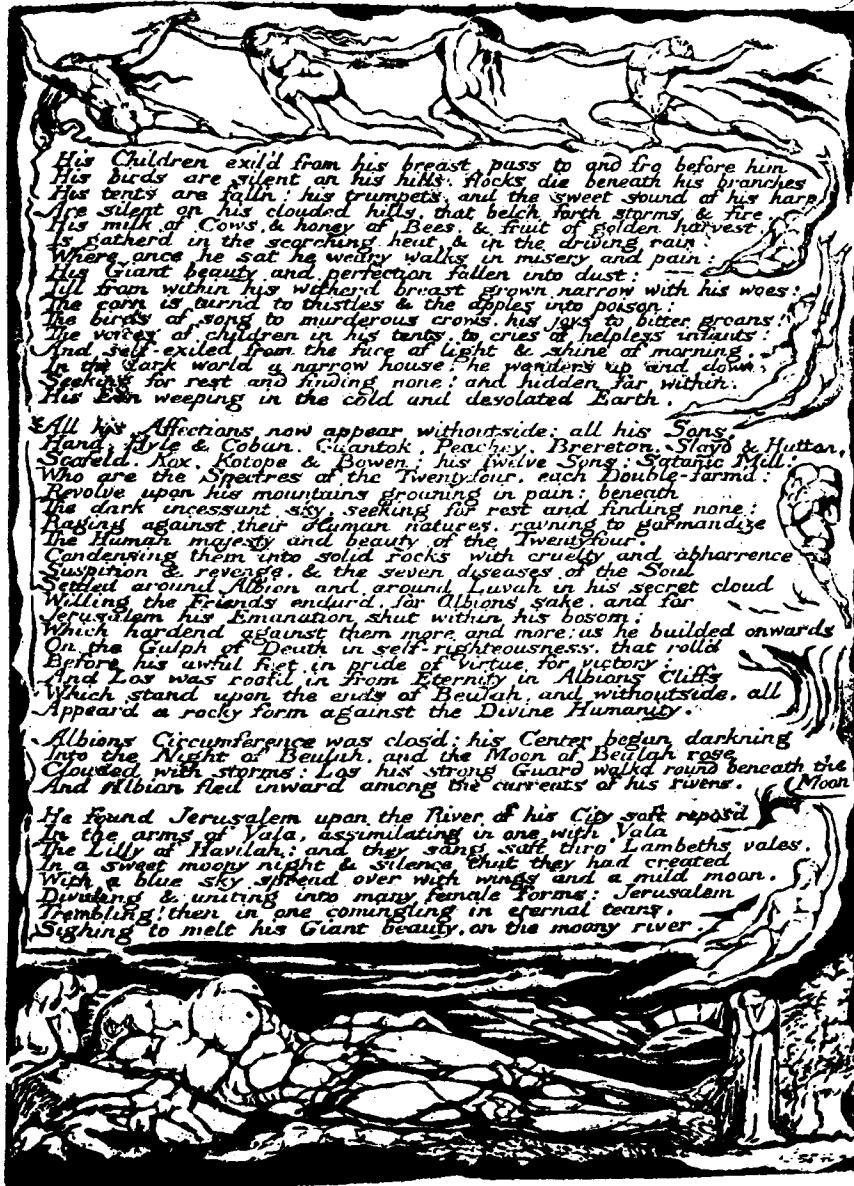 His Children exil'd from his breast pass to and fro before him
His birds are silent on his hills, flocks die beneath his branches
His tents are fall'n! his trumpets, and the sweet sound of his harp
Are silent on his clouded hills, that belch forth storms & fire.
His milk of Cows, & honey of Bees, & fruit of golden harvest,
Is gather'd in the scorching heat, & in the driving rain:
Where once he sat he weary walks in misery and pain:
His Giant beauty and perfection fallen into dust:
Till from within his witherd breast grown narrow with his woes:
The corn is turn'd to thistles & the apples into poison:
The birds of song to murderous crows, his joys to bitter groans!
The voices of children in his tents, to cries of helpless infants!
And self-exiled from the face of light & shine of morning,
In the dark world a narrow house! he wanders up and down,
Seeking for rest and finding none! and hidden far within,
His Eon weeping in the cold and desolated Earth.
All his Affections now appear withoutside: all his Sons,
Hand, Hyle & Coban, Guantok, Peachey, Brereton, Slayd & Hutton,
Scofeld, Kox, Kotope & Bowen; his Twelve Sons: Satanic Mill!
Who are the Spectres of the Twentyfour, each Double-form'd:
Revolve upon his mountains groaning in pain: beneath
The dark incessant sky, seeking for rest and finding none:
Raging against their Human natures, ravning to gormandize
The Human majesty and beauty of the Twentyfour.
Condensing them into solid rocks with cruelty and abhorrence
Suspition & revenge, & the seven diseases of the Soul
Settled around Albion and around Luvah in his secret cloud
Willing the Friends endur'd, for Albions sake, and for
Jerusalem his Emanation shut within his bosom;
Which harden'd against them more and more; as he builded onwards
On the Gulph of Death in self-righteousness, that roll'd
Before his awful feet, in pride of virtue for victory:
And Los was roof'd in from Eternity in Albions Cliffs
Which stand upon the ends of Beulah, and withoutside, all
Appear'd a rocky form against the Divine Humanity.
Albions Circumference was clos'd: his Center began darkning
Into the Night of Beulah, and the Moon of Beulah rose
Clouded with storms: Los his strong Guard walkd round beneath the Moon
And Albion fled inward among the currents of his rivers.
He found Jerusalem upon the River of his City soft repos'd
In the arms of Vala, assimilating in one with Vala
The Lilly of Havilah: and they sang soft thro' Lambeths vales,
In a sweet moony night & silence that they had created
With a blue sky spread over with wings and a mild moon,
Dividing & uniting into many female forms: Jerusalem
Trembling! then in one comingling in eternal tears,
Sighing to melt his Giant beauty, on the moony river.